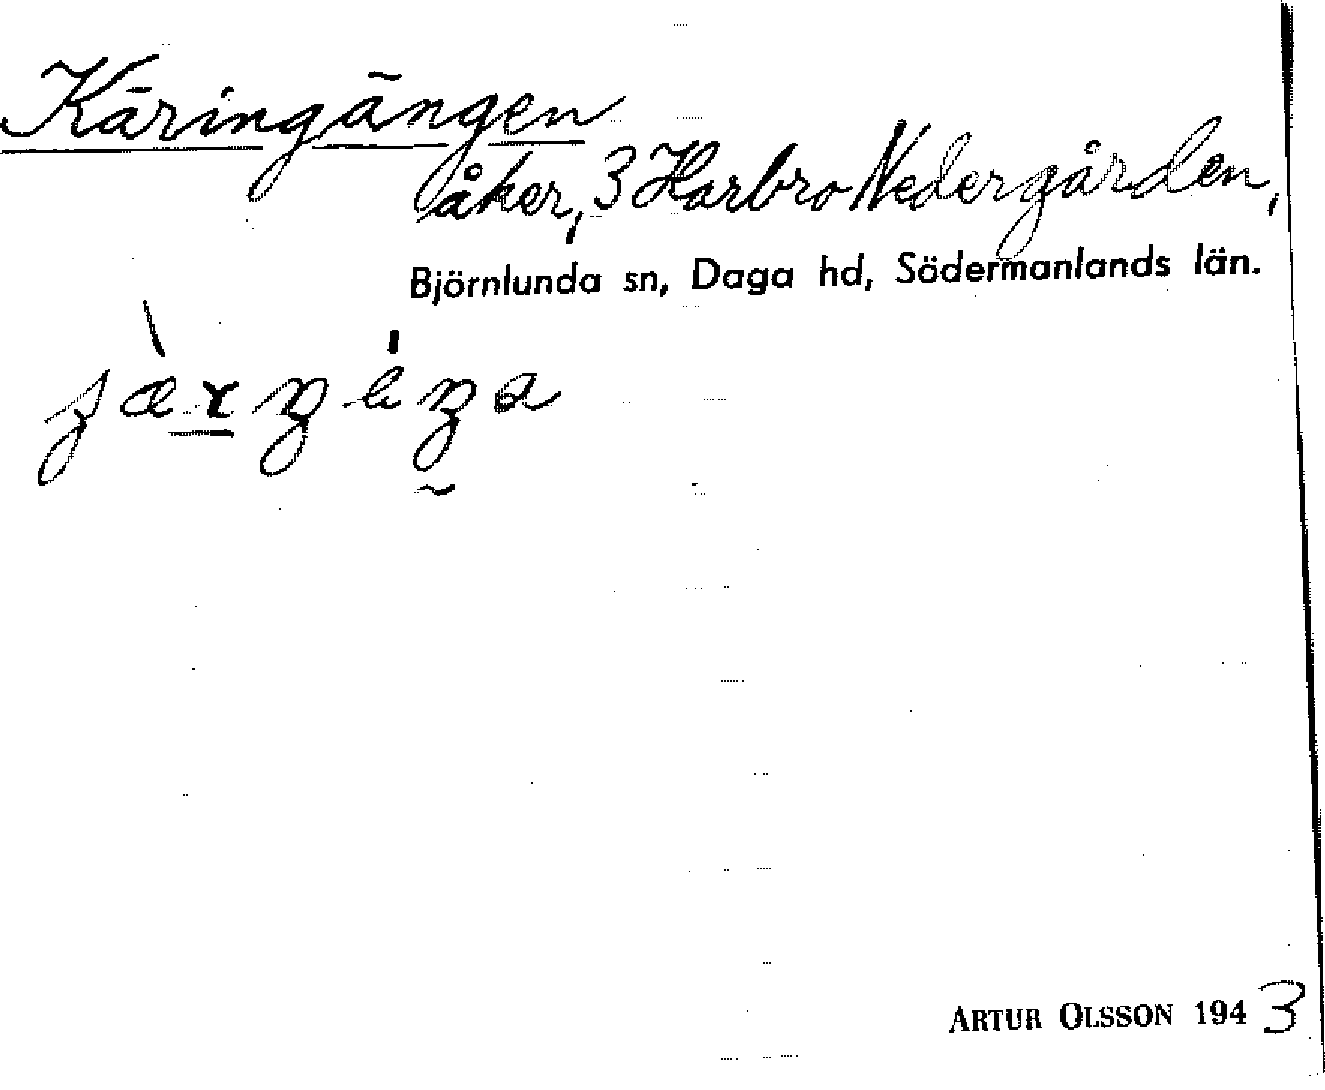 Käringängen
åker, 3 Harbro Nedergården,
Björnlunda sn, Daga hd, Södermanlands län.
ARTUR OLSSON 1943